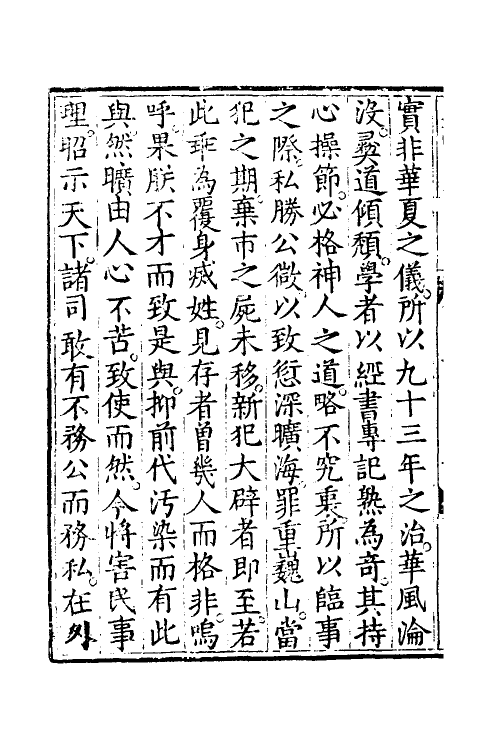 實非華夏之儀。所以九十三年之治。華風淪
沒。彝道傾頹。學者以經書專記熟為奇。其持
心操節。必格神人之道。略不究衷。所以臨事
之際。私勝公微。以致愆深曠海。罪重巍山。當
犯之期。棄市之屍未移。新犯大辟者即至。若
此乖為。覆身滅姓。見存者曾幾人而格非。嗚
呼。果朕不才而致是與。抑前代汚染而有此
與。然曠由人心不苦。致使而然。今將害民事
理。昭示天下。諸司敢有不務公而務私。在外